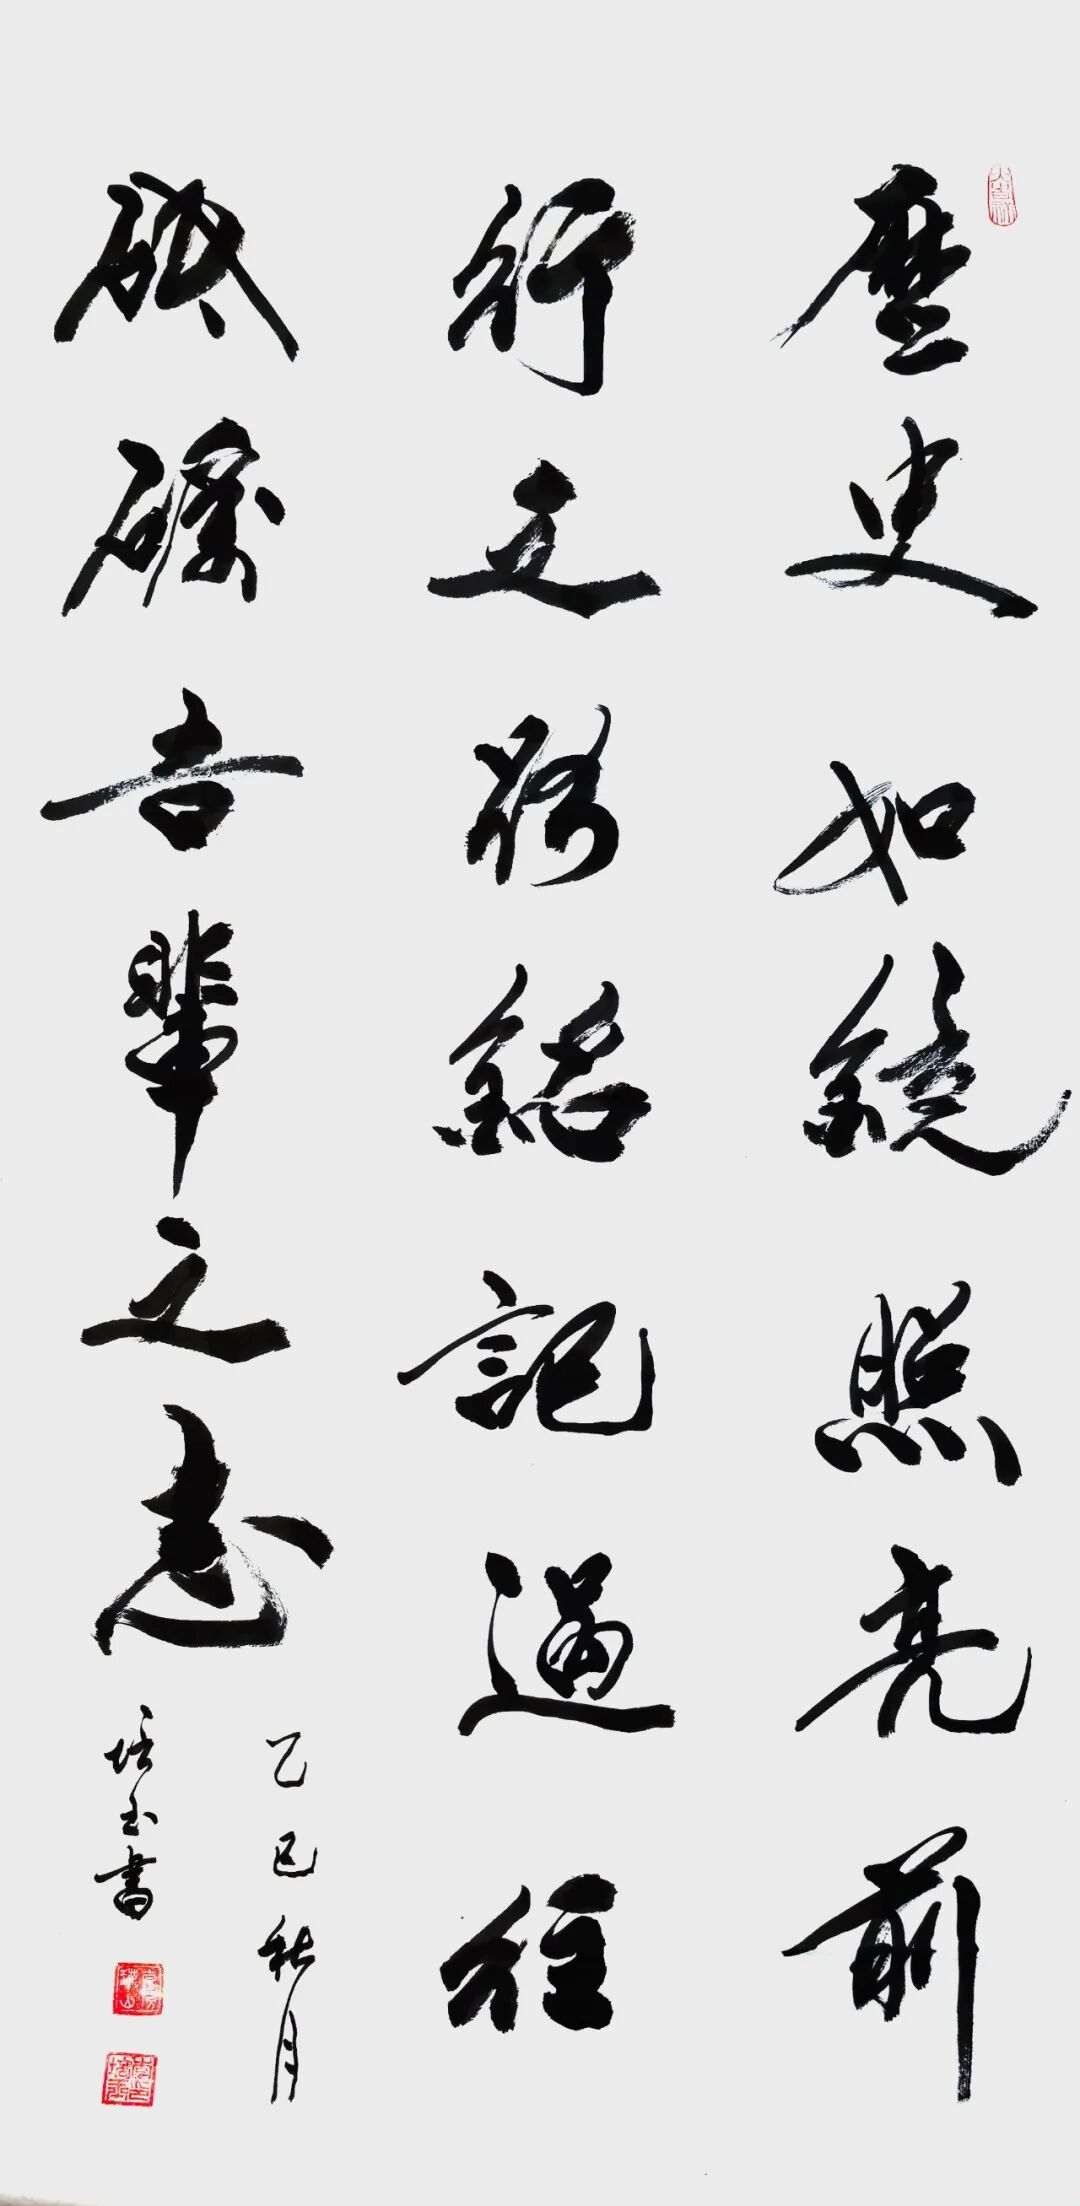 歷史如鏡照亮前
行之路銘記過往
砥礪吾輩之志
乙巳秋月
培玉書